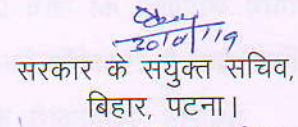 30/01/19
सरकार के संयुक्त सचिव,
बिहार, पटना।